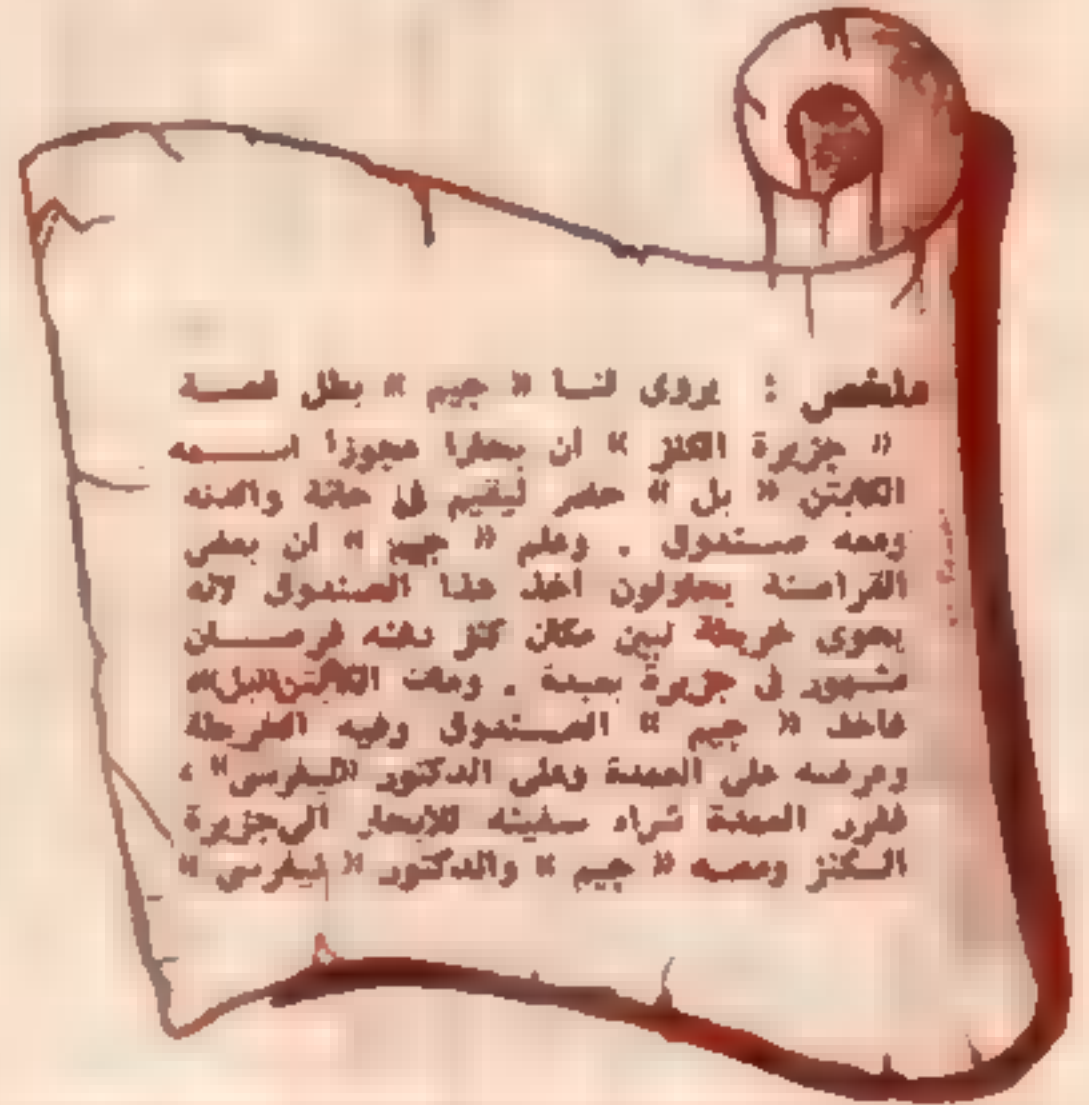 ملخص : يروى لنا « جيم » بطل قصة
« جزيرة الكنز » أن بحارا عجوزا اسمه
الكابتن « بل » حضر ليقيم فى حانة والدته
ومعه صندوق . وعلم « جيم » أن بعض
القراصنة يحاولون أخذ هذا الصندوق لأنه
يحوى خريطة تبين مكان كنز دفنه قرصان
مشهور فى جزيرة بعيدة . ومات الكابتن«بل»
فأخذ « جيم » الصندوق وفيه الخريطة
وعرضه على العمدة وعلى الدكتور «ليفرسى» ،
فقرر العمدة شراء سفينة للإبحار الى جزيرة
الكنز ومعه « جيم » والدكتور « ليفرسى »